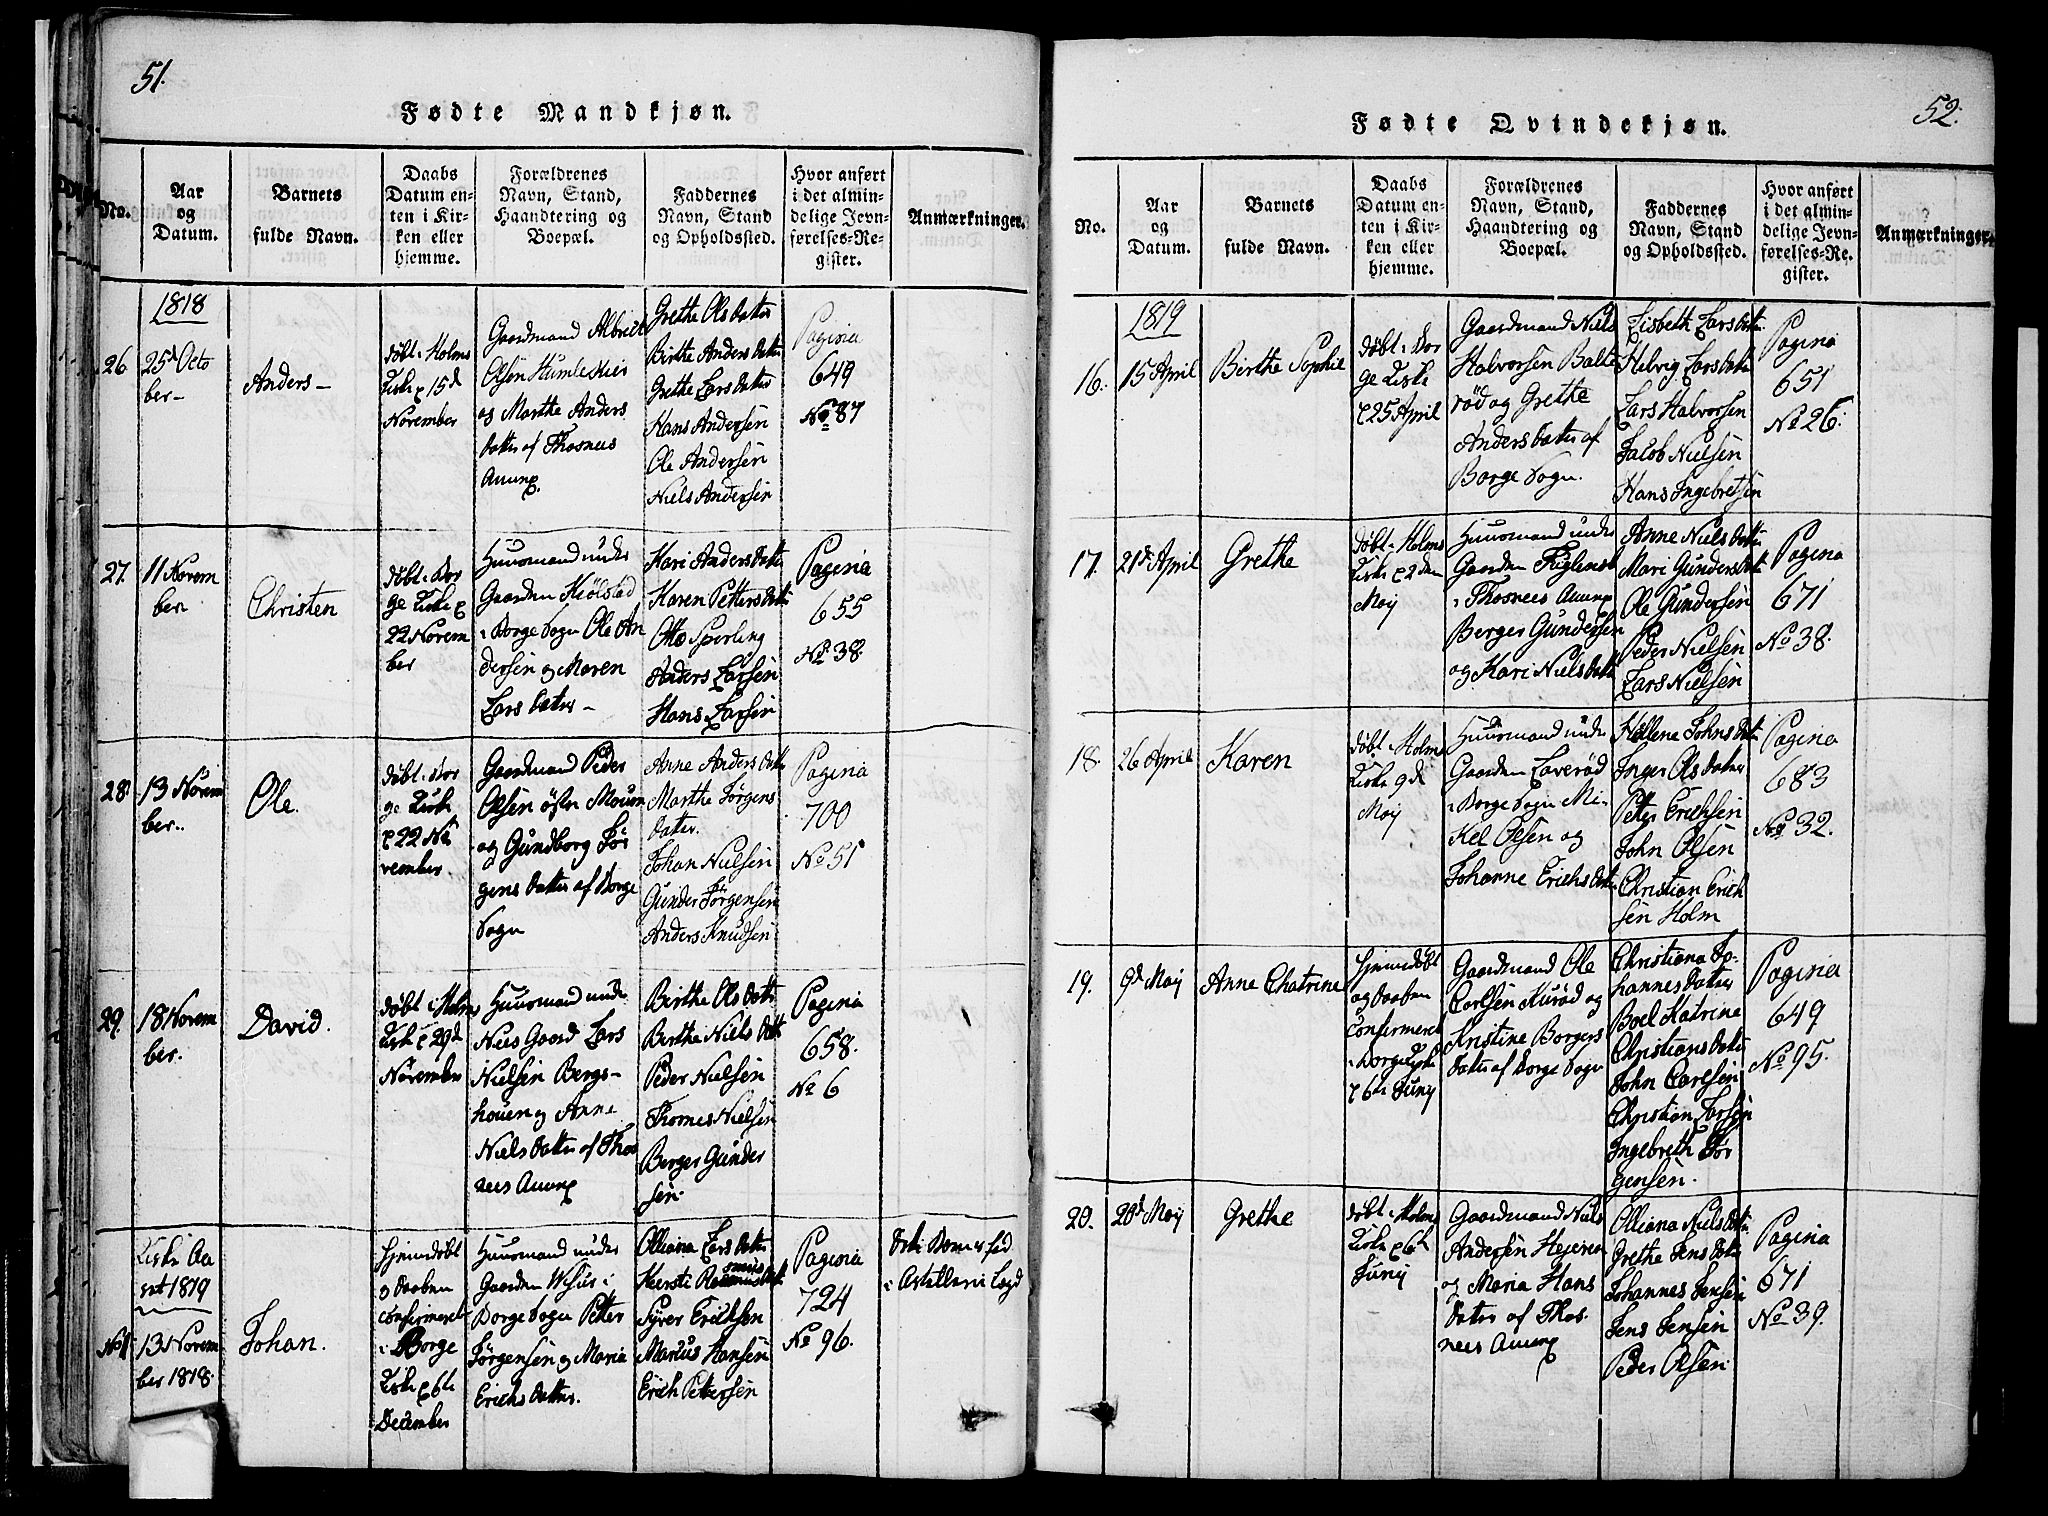 51.
Fødte Mandkjøn.
No.
Aar
og
Datum.
Barnets
fulde Navn.
Daabs
Datum en-
ten i Kir-
ken eller
hjemme.
Forældrenes
Navn, Stand,
Haandtering og
Boepæl.
Faddernes
Navn, Stand
og Opholdssted.
Hvor anført
i det almin-
delige Jevn-
førelses-Re-
gister.
Anmærkninger.
1818
26.
25d Octo
ber
Anders
døbt i Holms
Kirke 15d
November
Gaardmand Albret
Olsen Humlekier
og Marthe Anders
datter af Thosnæs
Annex.
Grethe Olsdatter
Birthe Andersdatter
Grethe Larsdatter
Hans Andersen
Ole Andersen
Niels Andersen
Pagina
649
No 87
27.
11 Novem
ber
Christen
døbt i Bor
ge Kirke
22 Novem
ber
Huusmand under
Gaarden Kiølstad
i Borge Sogn Ole An
dersen og Maren
Larsdatter
Kari Andersdatter
Karen Pettersdatter
Otto Sperling
Anders Larsen
Hans Larsen
Pagina
655
No 38.
28.
13 Novem
ber.
Ole.
døbt i Bor
ge Kirke
22 No
vember.
Gaardmand Peder
Olsen øster Moum
og Gundborg Jør
gensdatter af Borge
Sogn
Anne Andersdatter
Marthe Jørgens
datter.
Johan Nielsen
Gunder Jørgensen
Anders Knudsen
Pagina
700
No 51
29.
18 Novem
ber.
David.
døbt i Holms
Kirke 29d
November
Huusmand under
Nees Gaard Lars
Nielsen Bergs-
houen og Anne
Nielsdatter af Thos
nees Annex
Birthe Olsdatter
Birthe Nielsdatter
Peder Nielsen
Thomes Nielsen
Berger Gunder
sen.
Pagina
658.
No 6
Kirke Aa
ret 1819
No 1
13 Novem
ber 1818.
Johan.
hjemdøbt
og Daaben
confirmeret
i Borge
Kirke 6te
December
Huusmand under
Gaarden
Borge Sogn Petter
Jørgensen og Maria
Erichsdatter.
Olliana Larsdatter
Kersti
Syver Ericksen
Marius Hansen
Erich Pettersen
Pagina
724
No 96.
52.
Fødte Qvindekjøn.
No.
Aar
og
Datum.
Barnets
fulde Navn.
Daabs
Datum en-
ten i Kir-
ken eller
hjemme.
Forældrenes
Navn, Stand,
Haandtering og
Boepæl.
Faddernes
Navn, Stand
og Opholdssted.
Hvor anført
i det almin-
delige Jevn-
førelses-Re-
gister.
Anmærkninger.
1819
16.
15 April
Birthe Sophie
døbt i Bor
ge Kirke
25 April
Gaardmand Niels
Halvorsen Balte
rød og Grethe
Andersdatter af
Borge Sogn.
Lisbeth Larsdatter
Helvig Larsdatter
Lars Halvorsen
Jacob Nielsen
Hans Ingebretsen
Pagina
651
No 26.
17.
21d April
Grethe
døbt i Holms
Kirke 2den
May
Huusmand under
Gaarden
i Thosnees Annex
Berger Gundersen
og Kari Nielsdatter
Anne Nielsdatter
Mari Gundersdatter
Ole Gundersen
Peder Nielsen
Lars Nielsen
Pagina
671
No 38.
18.
26 April
Karen
døbt i Holms
Kirke 9d
May
Huusmand under
Gaarden Laverød
i Borge Sogn Mi-
kel Olsen og
Johanne Erichsdatter
Hellene Johnsdatter
Inger Olsdatter
Petter Erichsen
John Olsen
Christian Erich
sen Holm
Pagina
683
No 32.
19.
9d May
Anne Chatrine
hjemdøbt
og Daaben
confirmeret
i Borge Kirke
6te Juny
Gaardmand Ole
Carlsen Kurød og
Kristine Borgers
datter af Borge Sogn
Christiana Jo-
hannesdatter
Boel Katrine
Christiansdatter
John Carlsen
Christian Larsen
Ingebreth Jør
gensen.
Pagina
649
No 95.
20.
20d May
Grethe
døbt i Holms
Kirke 6te
Juny
Gaardmand Niels
Andersen Hejeren
og Maria Hans
datter af Thos
nees Annex
Olliana Nielsdatter
Grethe Jensdatter
Johannes Jensen
Jens Jensen
Peder Olsen
Pagina
671
No 39.